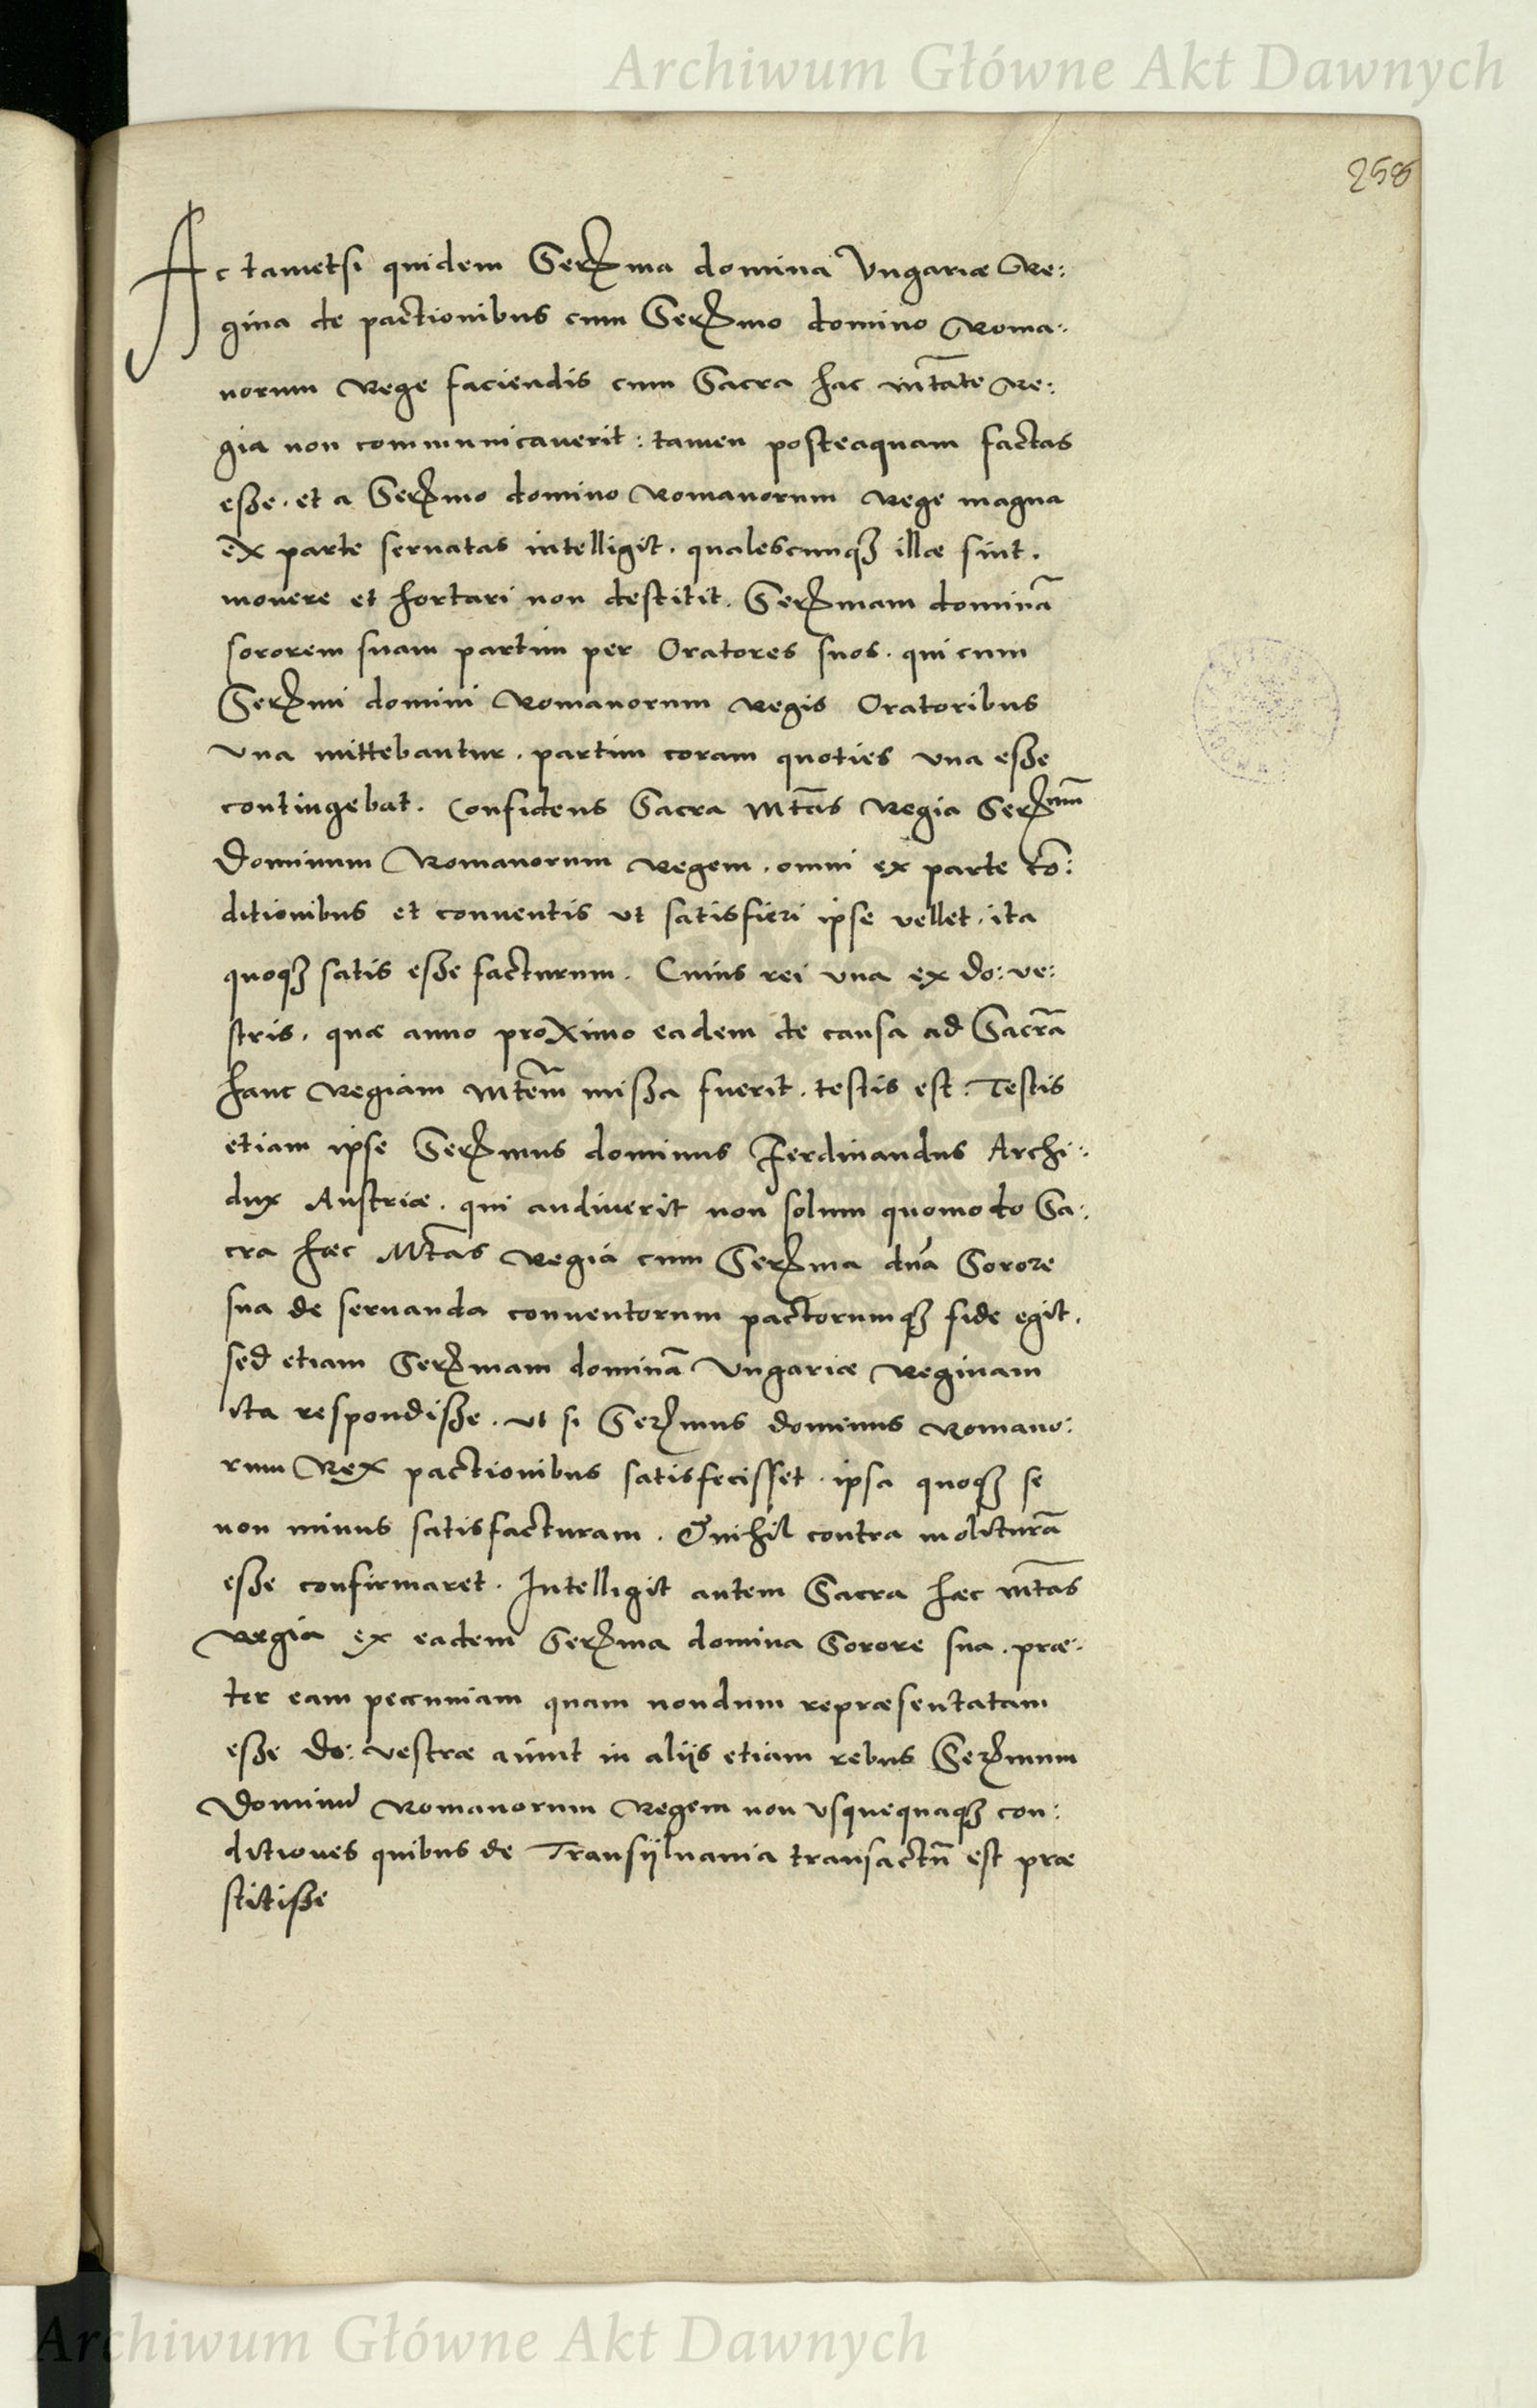 Archiwum Główne Akt Dawnych
258
Ac tametsi quidem Serma domina Vngariæ Re:
gina de pactionibus cum Sermo domino Roma:
norum Rege faciendis cum Sacra hac Mtate Re:
gia non communicauerit: tamen posteaquam factas
esse. et a Sermo domino Romanorum Rege magna
ex parte seruatas intelligit. qualescunq3 illæ sint.
monere et hortari non destitit. Sermam dominā
sororem suam partim per Oratores suos. qui cum
Sermi domini Romanorum Regis Oratoribus
vna mittebantur. partim coram quoties vna esse
contingebat. Confidens Sacra Mtas Regia Sermum
Dominum Romanorum Regem. omni ex parte cō:
ditionibus et conuentis vt satisfieri ipse vellet. ita
quoq3 satis esse facturum. Cuius rei vna ex do: ve:
stris. quæ anno proximo eadem de causa ad Sacrā
hanc Regiam Mtem missa fuerit. testis est. Testis
etiam ipse Sermus dominus Ferdinandus Archi:
dux Austriæ. qui audiuerit non solum quomodo Sa:
cra hæc Mtas Regia cum Serma dna Sorore
sua de seruanda conuentorum pactorumq3 fide egit.
sed etiam Sermam dominā Vngariæ Reginam
ita respondisse. vt si Sermus dominus Romano:
rum Rex pactionibus satisfecisset. ipsa quoq3 se
non minus satisfacturam. & nihil contra moliturā
esse confirmaret. Intelligit autem Sacra hæc Mtas
Regia ex eadem Serma domina Sorore sua. præ:
ter eam pecuniam quam nondum repræsentatam
esse do: vestræ aiunt in aliis etiam rebus Sermum
Dominū Romanorum Regem non vsquequaq3 con:
ditiones quibus de Transylvania transactū est præ
stitisse
Archiwum Główne Akt Dawnych